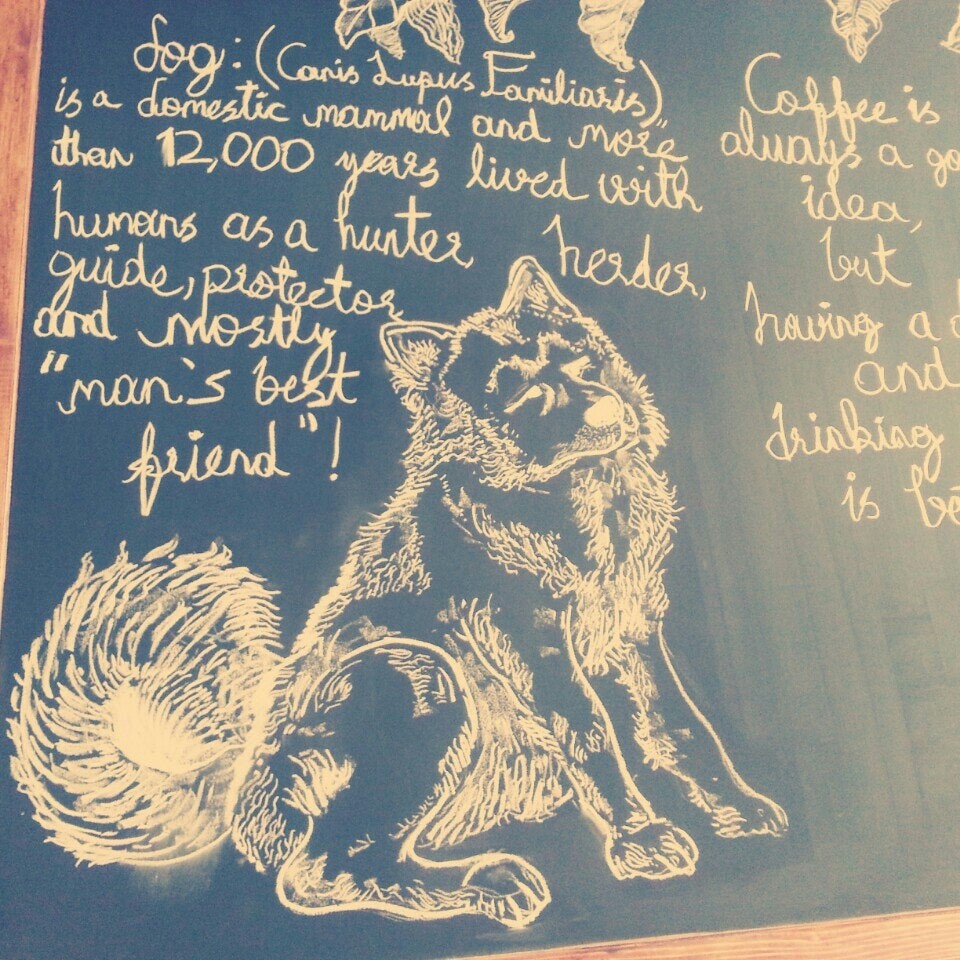 dog: (Canis Lupus Familiaris)
is a domestic mammal and more
than 12,000 years lived with
humans as a hunter, herder,
guide, protector
and mostly
"man's best
friend"!
Coffee is
always a
idea,
but
having a
and
drinking
is